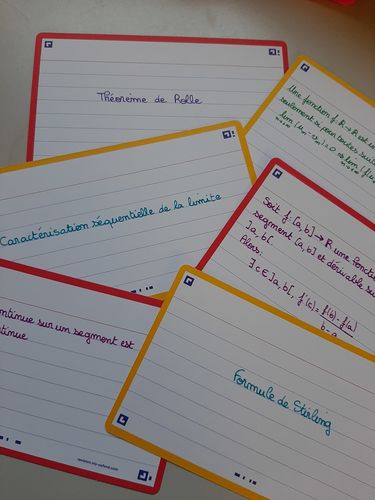 Théorème de Rolle
Une fonction f: R → R est un
seulement si pour toutes suit
lim (un - vn) = 0 ⇒ lim (f(u
n→+∞ n→+∞
Caractérisation séquentielle de la limite
Soit f: [a, b] → R une fonctio
segment [a, b] et dérivable su
]a, b[.
Alors:
∃ c ∈ ]a, b[, f'(c) = f(b) - f(a)
b - a
ntinue sur un segment est
tinue
Formule de Stirling